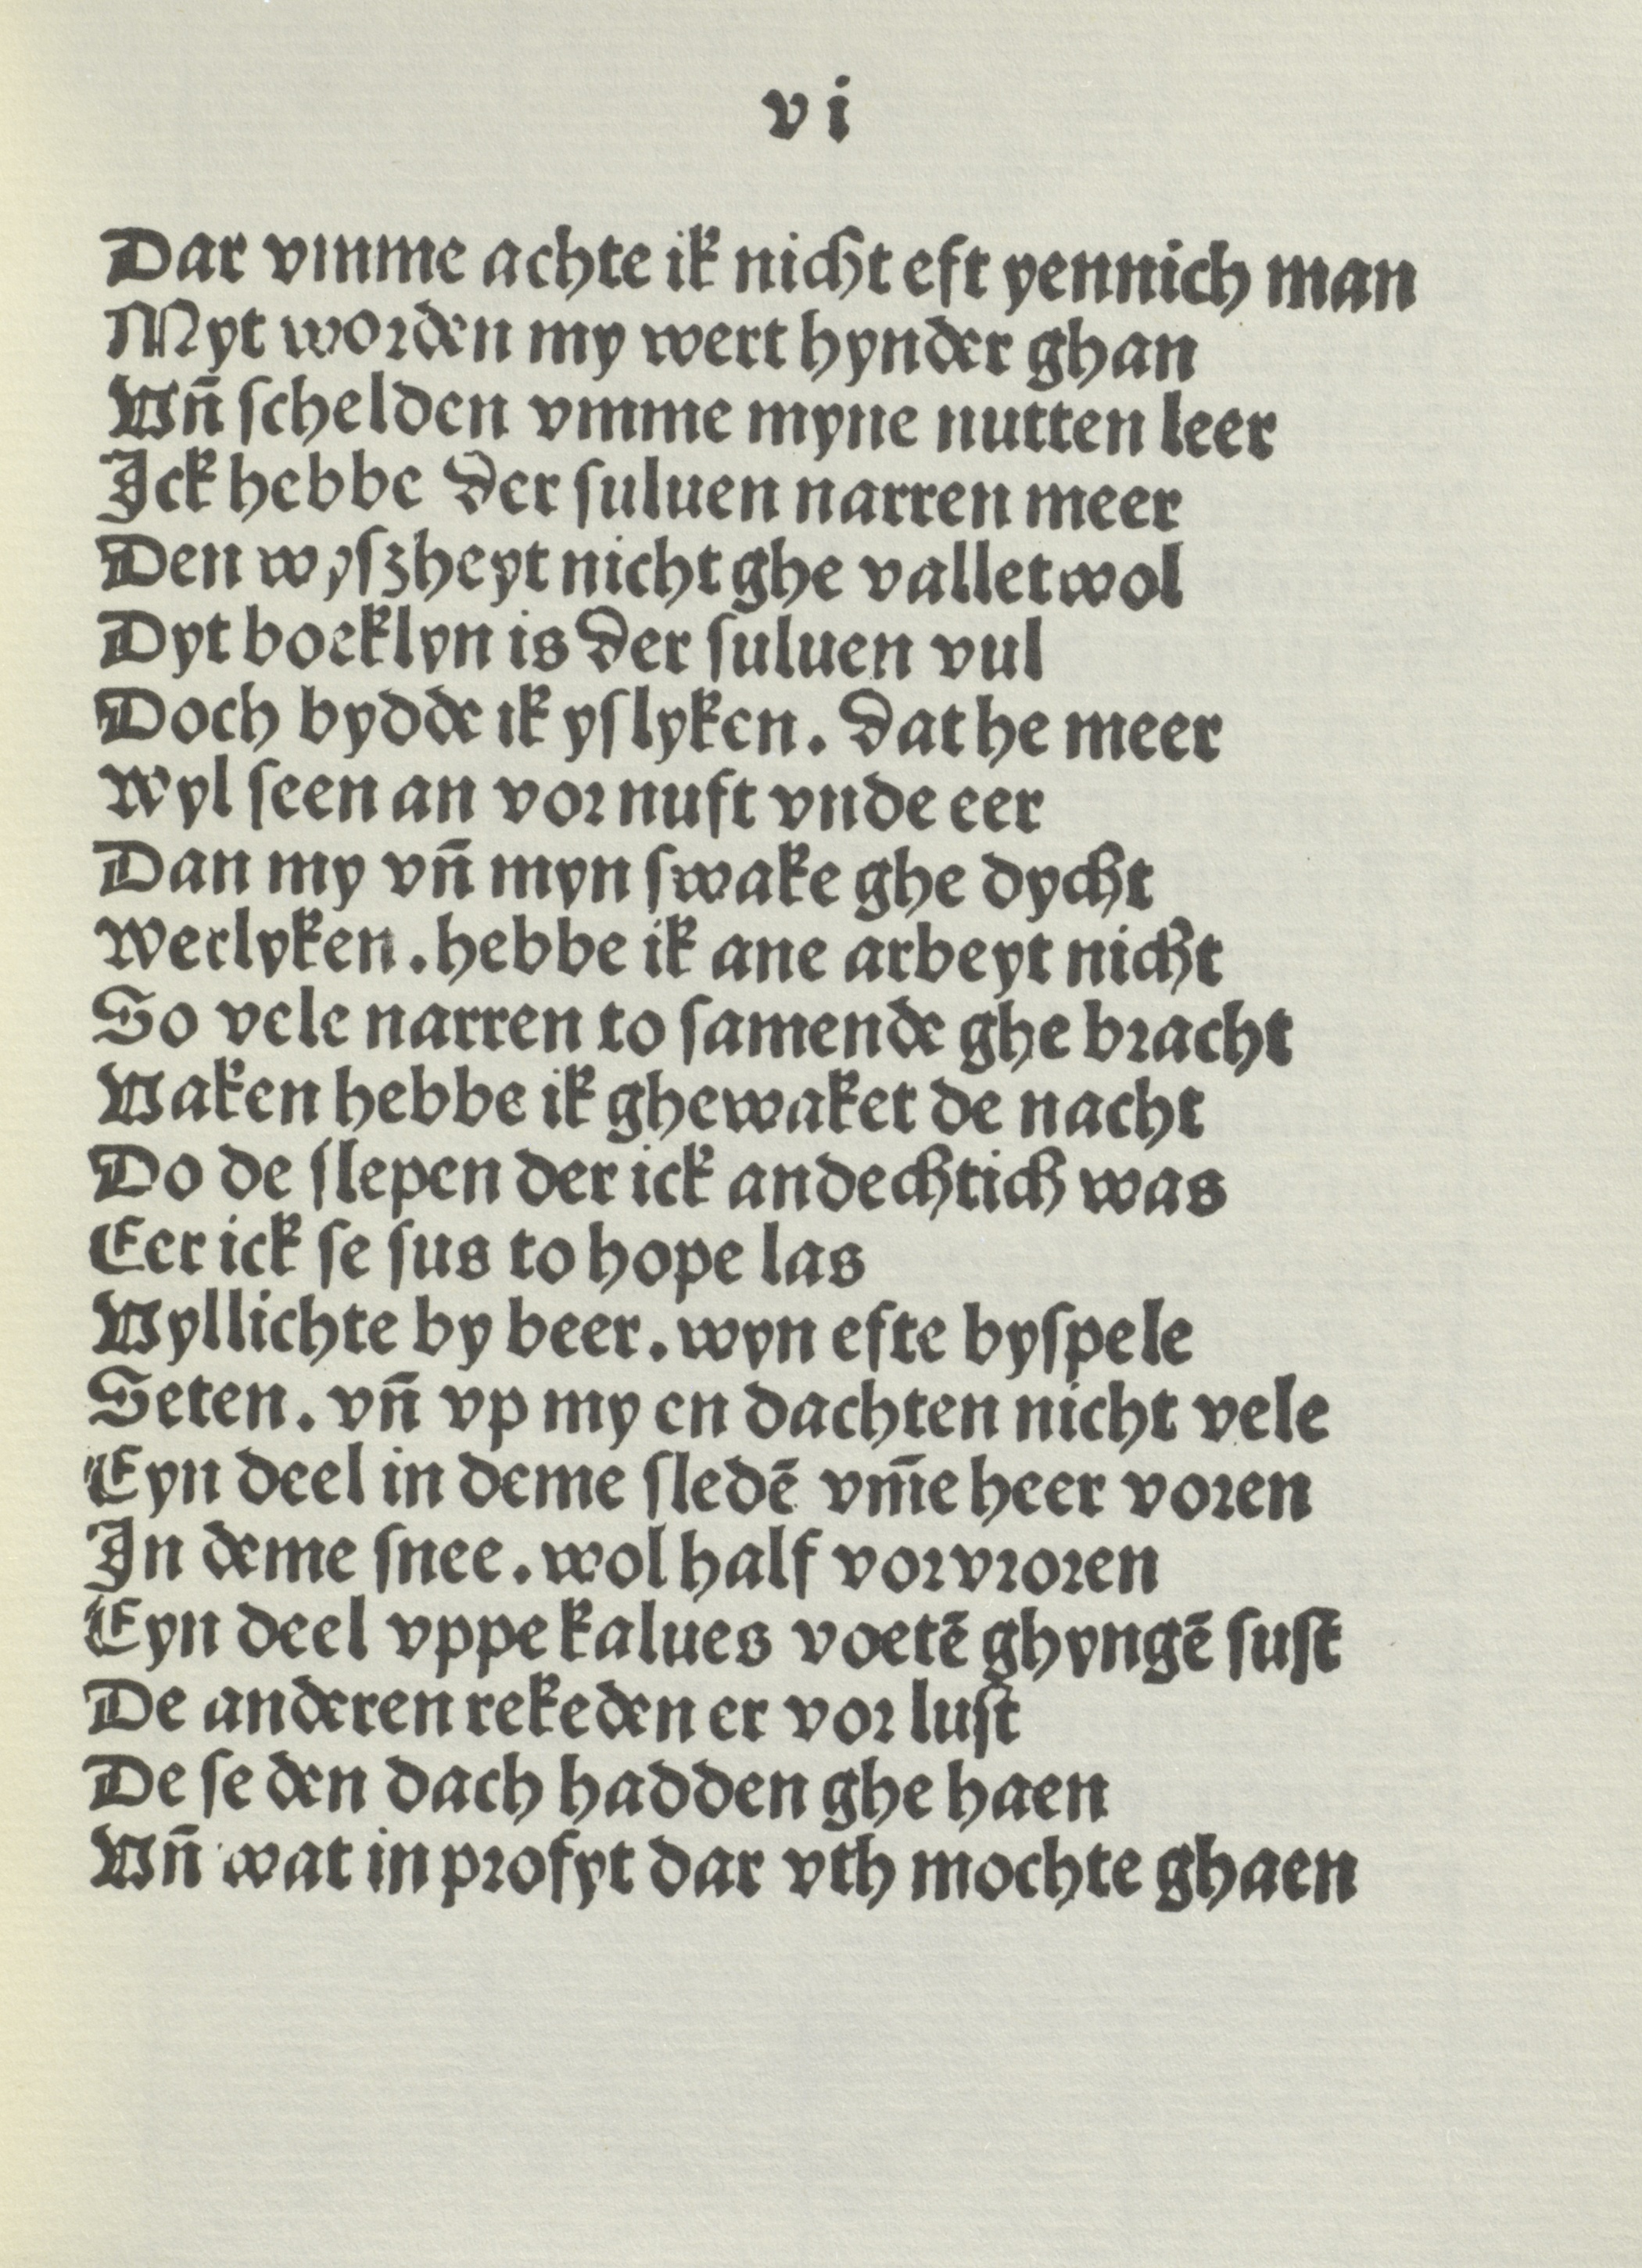 vi
Dar vmme achte ik nicht eft yennich man
Myt worden my wert hynder ghan
Vn̄ ſchelden vmme myne nutten leer
Ick hebbe der ſuluen narren meer
Den wyſzheyt nicht ghe vallet wol
Dyt boeklyn is der ſuluen vul
Doch bydde ik yſlyken. dat he meer
Wyl ſeen an vor nuft vnde eer
Dan my vn̄ myn ſwake ghe dycht
Werlyken. hebbe ik ane arbeyt nicht
So vele narren to ſamende ghe bracht
Vaken hebbe ik ghewaket de nacht
Do de ſlepen der ick andechtich was
Eer ick ſe ſus to hope las
Vyllichte by beer. wyn efte byſpele
Seten. vn̄ vp my en dachten nicht vele
Eyn deel in deme ſledē vm̄e heer voren
In deme ſnee. wol half vorvroren
Eyn deel vppe kalues voetē ghyngē ſuſt
De anderen rekeden er vor luſt
De ſe den dach hadden ghe haen
Vn̄ wat in profyt dar vth mochte ghaen